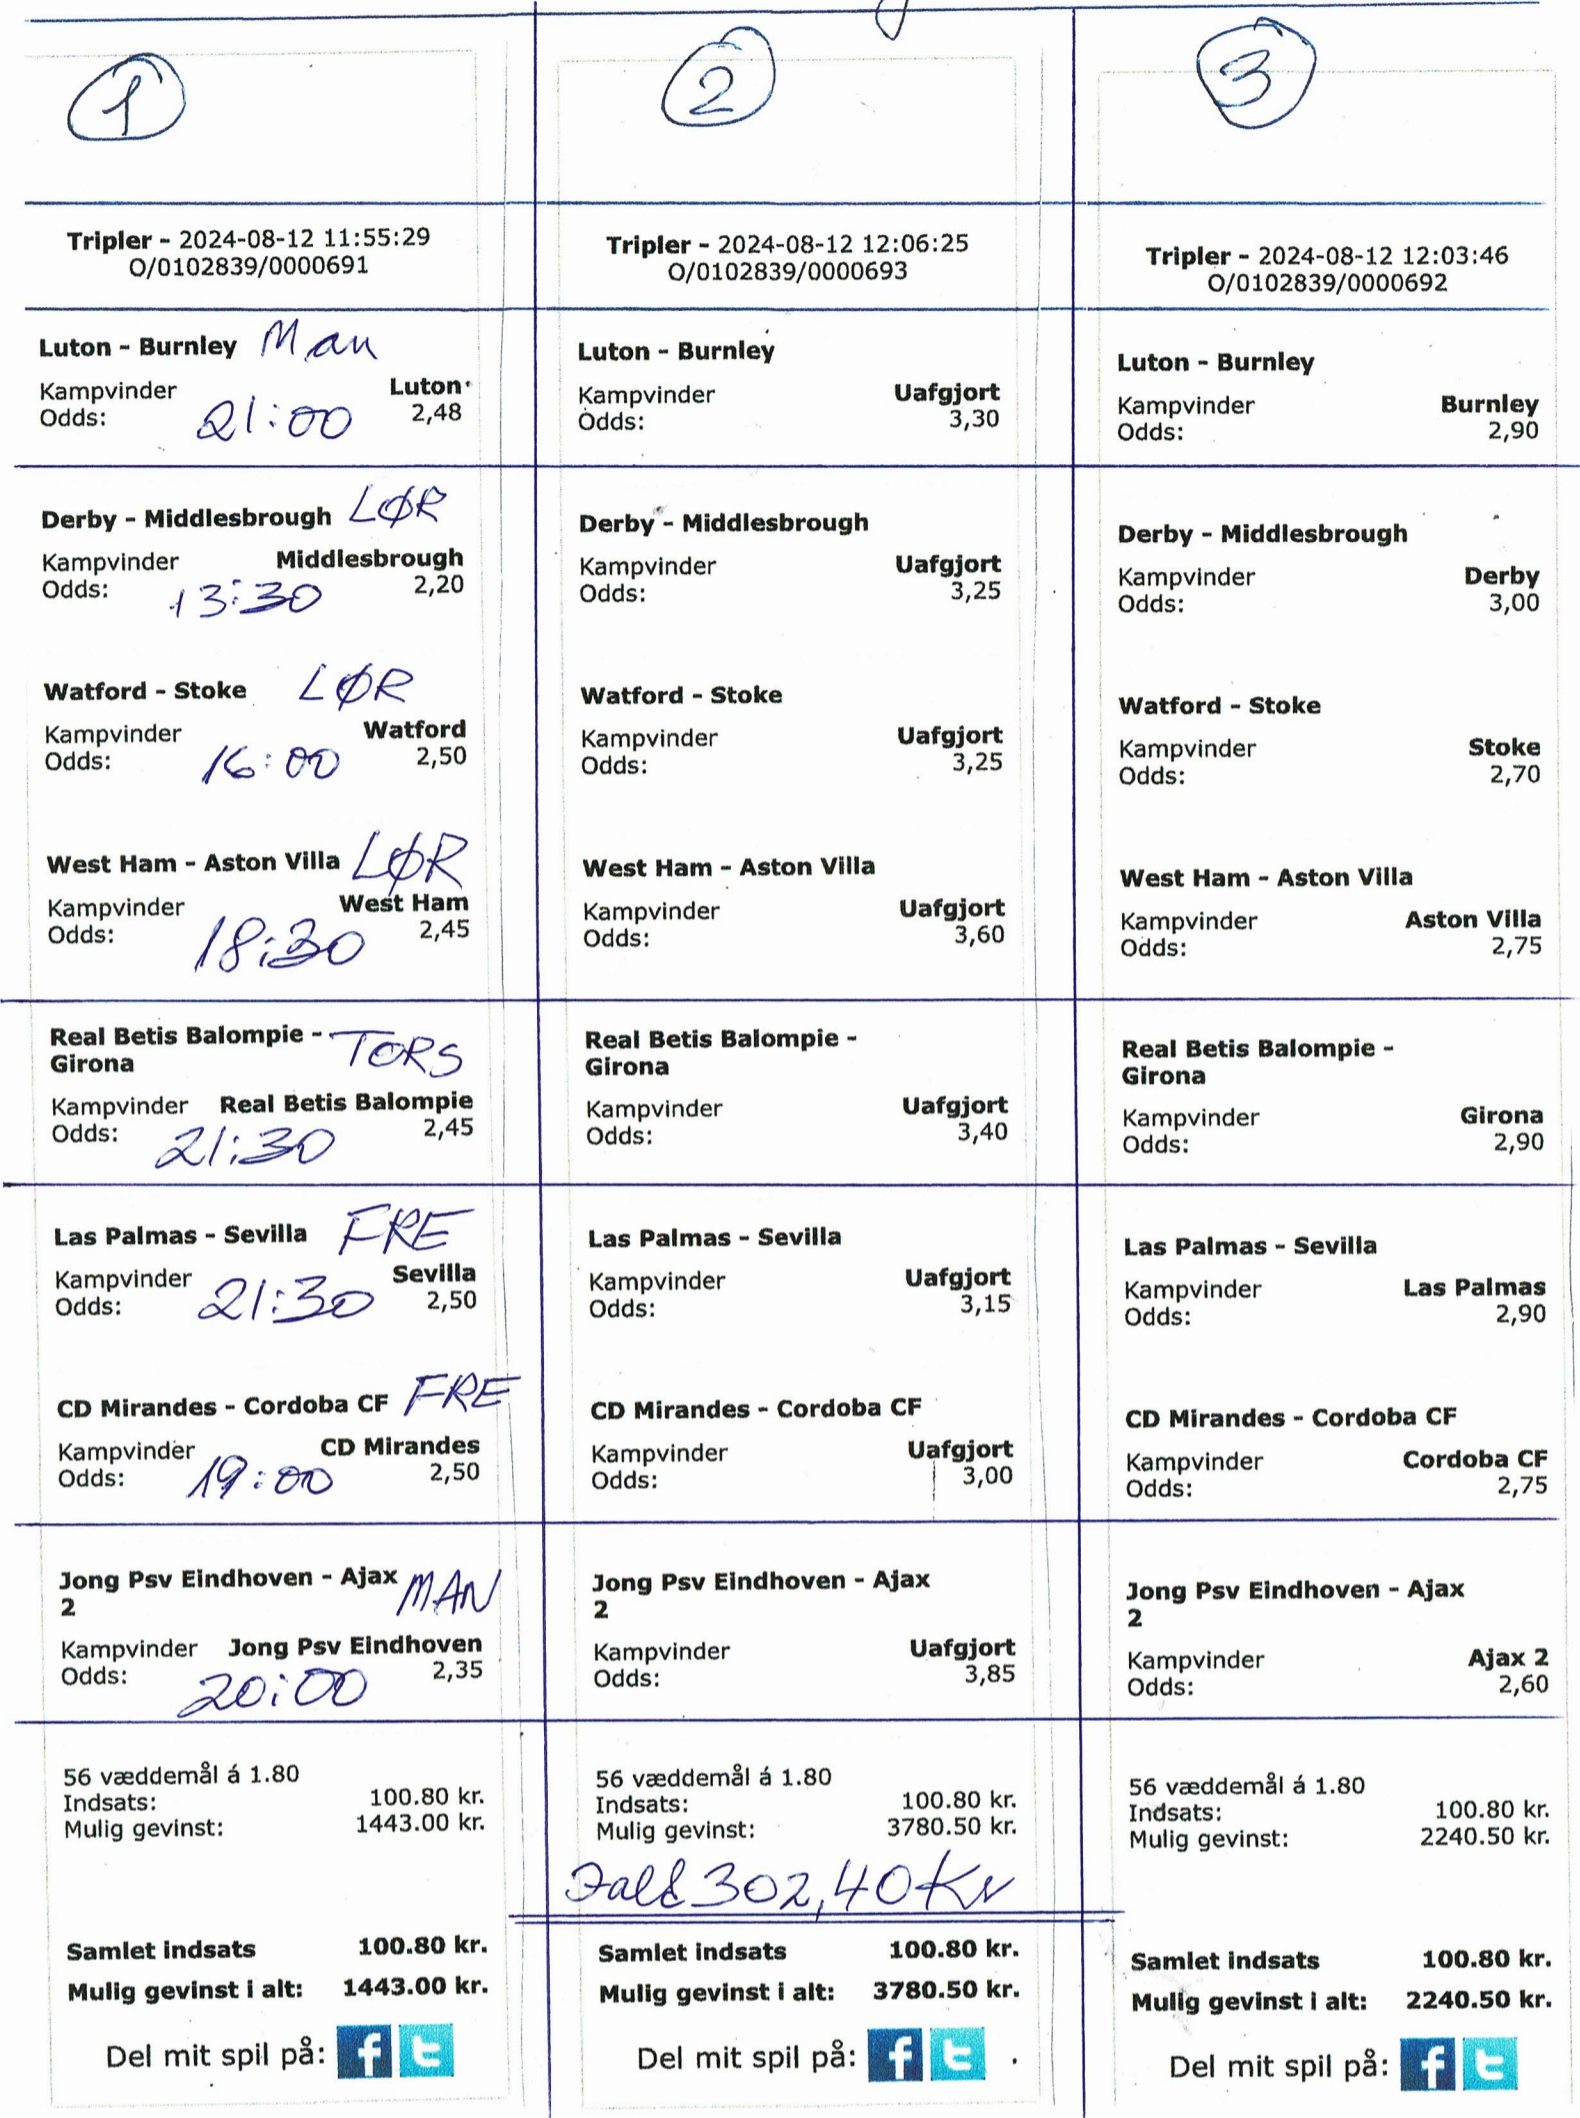 1
Tripler - 2024-08-12 11:55:29
O/0102839/0000691
Luton - Burnley Man
Kampvinder Luton
Odds: 21:00 2,48
Derby - Middlesbrough LØR
Kampvinder Middlesbrough
Odds: 13:30 2,20
Watford - Stoke LØR
Kampvinder Watford
Odds: 16:00 2,50
West Ham - Aston Villa LØR
Kampvinder West Ham
Odds: 18:30 2,45
Real Betis Balompie - TORS
Girona
Kampvinder Real Betis Balompie
Odds: 21:30 2,45
Las Palmas - Sevilla FRE
Kampvinder Sevilla
Odds: 21:30 2,50
CD Mirandes - Cordoba CF FRE
Kampvinder CD Mirandes
Odds: 19:00 2,50
Jong Psv Eindhoven - Ajax MAN
2
Kampvinder Jong Psv Eindhoven
Odds: 20:00 2,35
56 væddemål á 1.80
Indsats: 100.80 kr.
Mulig gevinst: 1443.00 kr.
Samlet indsats 100.80 kr.
Mulig gevinst i alt: 1443.00 kr.
Del mit spil på: f t
2
Tripler - 2024-08-12 12:06:25
O/0102839/0000693
Luton - Burnley
Kampvinder Uafgjort
Odds: 3,30
Derby - Middlesbrough
Kampvinder Uafgjort
Odds: 3,25
Watford - Stoke
Kampvinder Uafgjort
Odds: 3,25
West Ham - Aston Villa
Kampvinder Uafgjort
Odds: 3,60
Real Betis Balompie -
Girona
Kampvinder Uafgjort
Odds: 3,40
Las Palmas - Sevilla
Kampvinder Uafgjort
Odds: 3,15
CD Mirandes - Cordoba CF
Kampvinder Uafgjort
Odds: 3,00
Jong Psv Eindhoven - Ajax
2
Kampvinder Uafgjort
Odds: 3,85
56 væddemål á 1.80
Indsats: 100.80 kr.
Mulig gevinst: 3780.50 kr.
302,40 Kr
Samlet indsats 100.80 kr.
Mulig gevinst i alt: 3780.50 kr.
Del mit spil på: f t
3
Tripler - 2024-08-12 12:03:46
O/0102839/0000692
Luton - Burnley
Kampvinder Burnley
Odds: 2,90
Derby - Middlesbrough
Kampvinder Derby
Odds: 3,00
Watford - Stoke
Kampvinder Stoke
Odds: 2,70
West Ham - Aston Villa
Kampvinder Aston Villa
Odds: 2,75
Real Betis Balompie -
Girona
Kampvinder Girona
Odds: 2,90
Las Palmas - Sevilla
Kampvinder Las Palmas
Odds: 2,90
CD Mirandes - Cordoba CF
Kampvinder Cordoba CF
Odds: 2,75
Jong Psv Eindhoven - Ajax
2
Kampvinder Ajax 2
Odds: 2,60
56 væddemål á 1.80
Indsats: 100.80 kr.
Mulig gevinst: 2240.50 kr.
Samlet indsats 100.80 kr.
Mulig gevinst i alt: 2240.50 kr.
Del mit spil på: f t